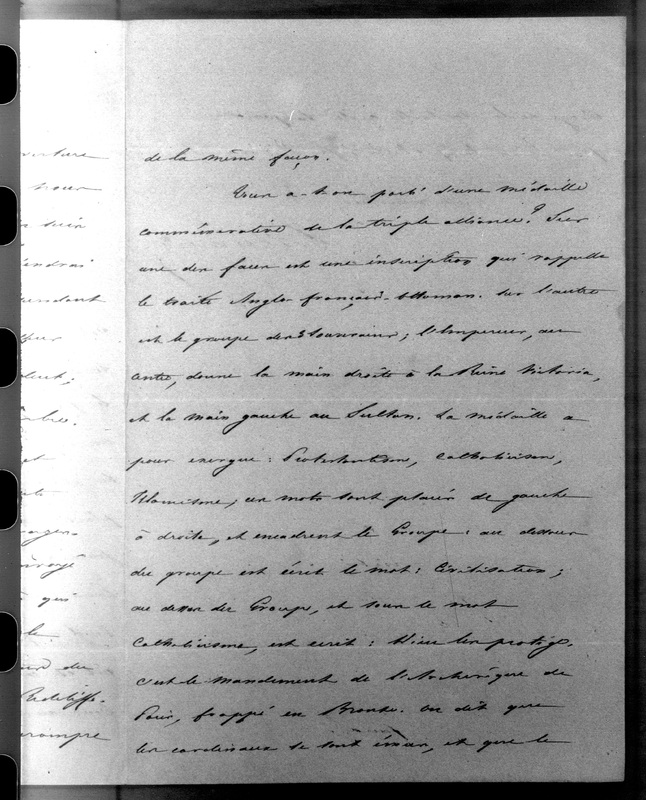 de la même façon.
Vous a-t-on parlé d'une médaille
commémorative de la triple alliance? Sur
une des faces est une inscription qui rappelle
le traité Anglo-français-Ottoman. Sur l'autre
est le groupe des 3 Souverains; l'Empereur, au
centre, donne la main droite à la Reine Victoria,
et la main gauche au Sultan. La médaille a
pour exergue: Protestantisme, Catholicisme,
Islamisme; ces mots sont placés de gauche
à droite, et encadrent le Groupe: au dessous
du groupe est écrit le mot: Civilisation;
au dessus du Groupe, et sous le mot
Catholicisme, est écrit: Dieu les protège.
C'est le mandement de l'Archevêque de
Paris, frappé en Bronze. On dit que
les cardinaux se sont émus, et que le
nous
endrai
pendant
et
qui
le
Redcliffe.
rompre